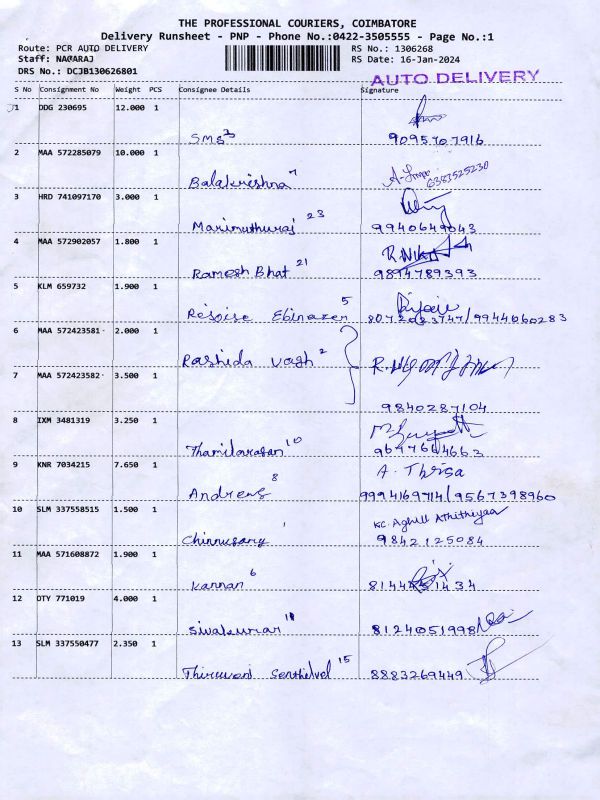 THE PROFESSIONAL COURIERS, COIMBATORE
Delivery Runsheet - PNP - Phone No.:0422-3505555 - Page No.:1
Route: PCR AUTO DELIVERY RS No.: 1306268
Staff: NAGARAJ RS Date: 16-Jan-2024
DRS No.: DCJB130626801
AUTO DELIVERY
S No Consignment No Weight PCS Consignee Details Signature
1 DDG 230695 12.000 1
SMS 3 9095707916
2 MAA 572285079 10.000 1
6383525230
Balakrishna 7
3 HRD 741097170 3.000 1
Marimuthuraj 23 9940649043
4 MAA 572902057 1.800 1
Ramesh Bhat 21 9894789393
5 KLM 659732 1.900 1
Rejoise Ebinazer 5 8072023747/9944060283
6 MAA 572423581 2.000 1
Rashida Vagh 2
7 MAA 572423582 3.500 1
9840287104
8 IXM 3481319 3.250 1
Thamilarasan 10 9697664663
9 KNR 7034215 7.650 1 A. Thrisa
Andrews 8 9994169714/9567398960
10 SLM 337558515 1.500 1 KC. Aghill Athithiyaa
Chinnusamy 1 9842125084
11 MAA 571608872 1.900 1
Kannan 6
12 OTY 771019 4.000 1
Sivakumar 8124051998
13 SLM 337550477 2.350 1
Senthilvel 15 8883269449